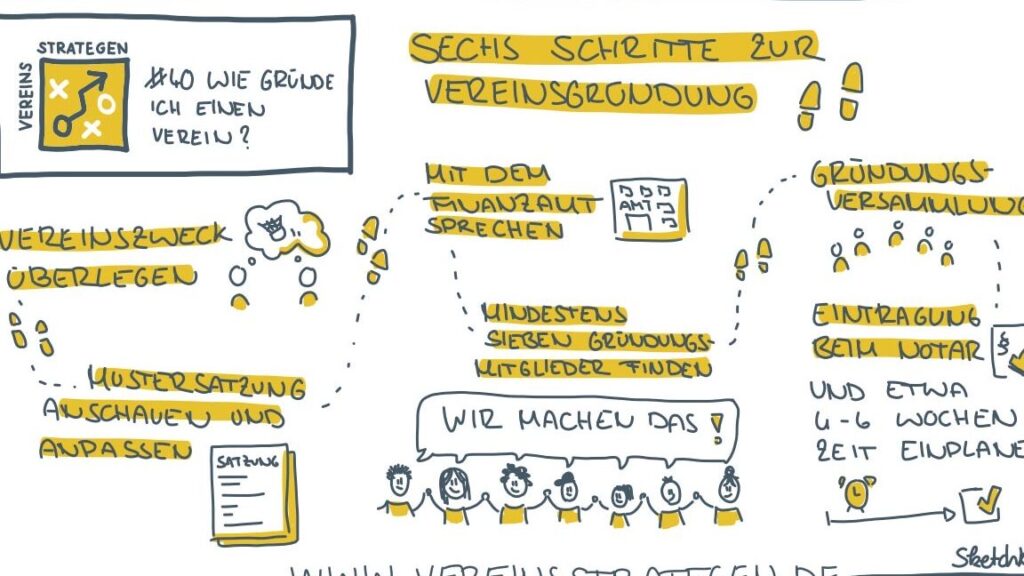 STRATEGEN
VEREINS
#40 WIE GRÜNDE
ICH EINEN
VEREIN?
SECHS SCHRITTE ZUR
VEREINSGRÜNDUNG
VEREINSZWECK
ÜBERLEGEN
MUSTERSATZUNG
ANSCHAUEN UND
ANPASSEN
SATZUNG
MIT DEM
FINANZAMT
SPRECHEN
AMT
MINDESTENS
SIEBEN GRÜNDUNGS-
MITGLIEDER FINDEN
WIR MACHEN DAS!
GRÜNDUNGS-
VERSAMMLUNG
EINTRAGUNG
BEIM NOTAR
§
§
UND ETWA
4-6 WOCHEN
ZEIT EINPLANE
Sketchn
WWW.VEREINSSTRATEGEN.DE